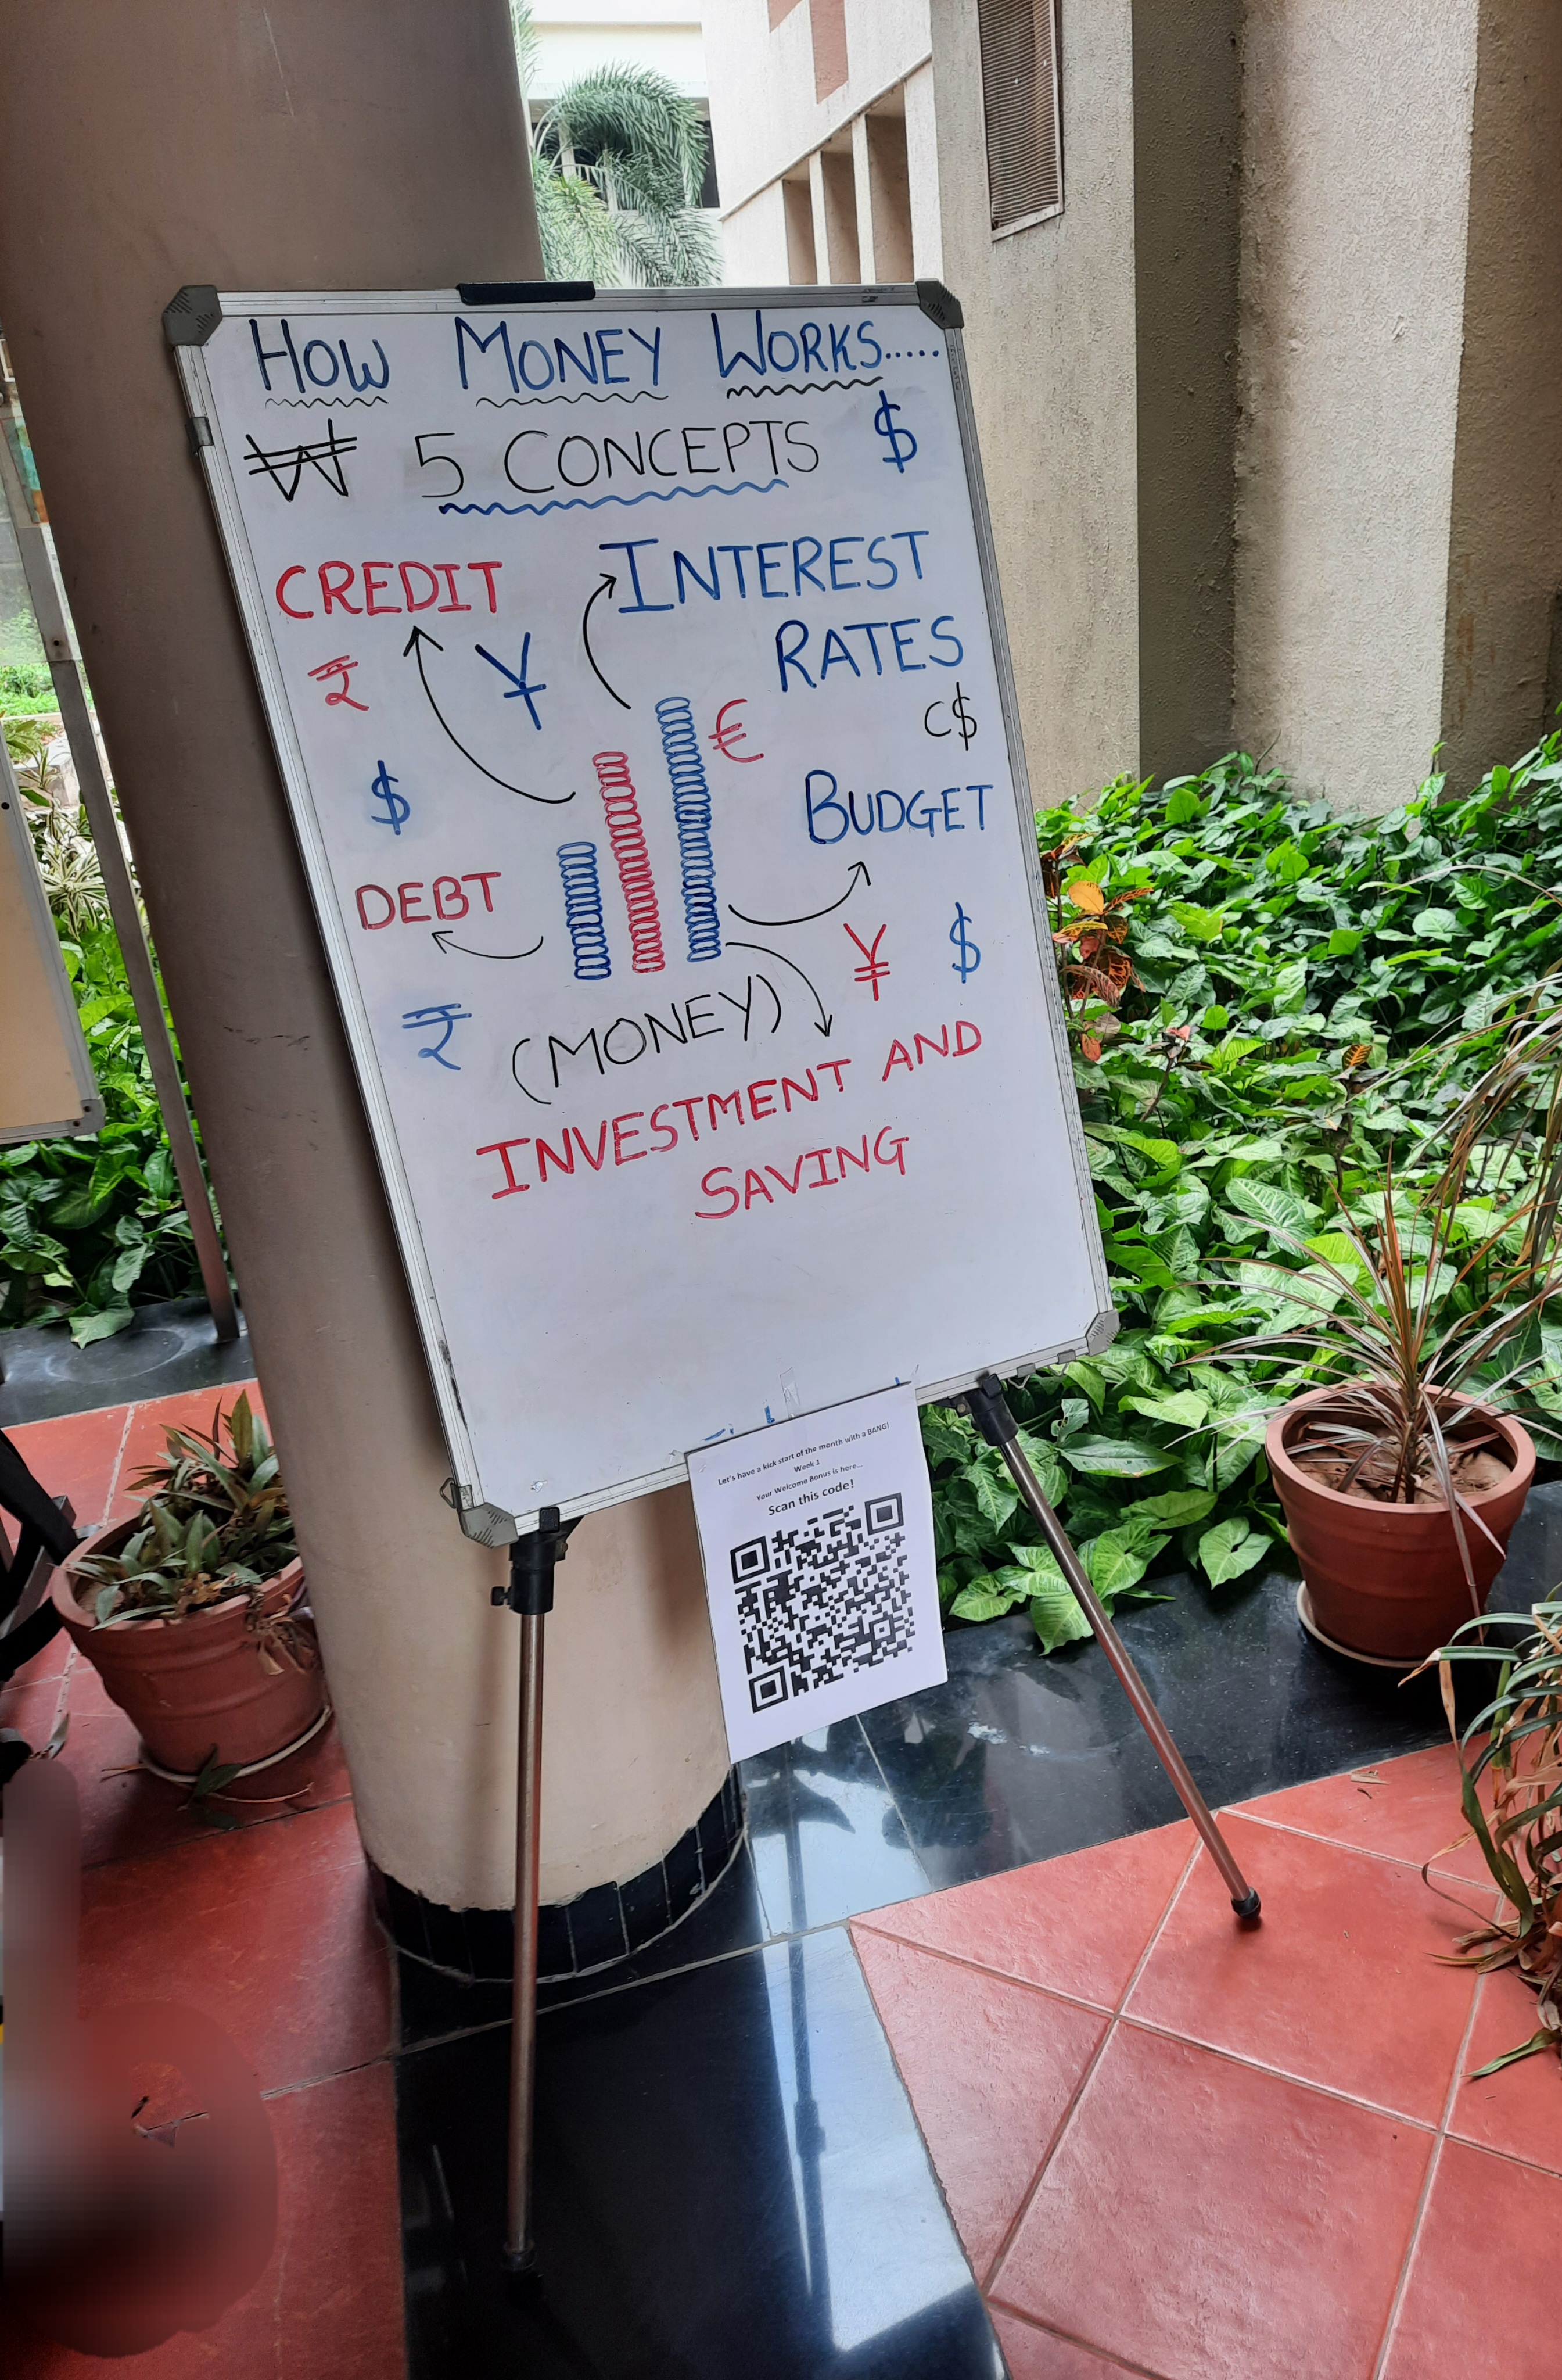 HOW MONEY WORKS.....
₩ 5 CONCEPTS $
CREDIT
INTEREST
RATES
₹ ¥
€
C$
$
BUDGET
DEBT
¥ $
₹ (MONEY)
INVESTMENT AND
SAVING
Let's have a kick start of the month with a BANG!
Week 1
Your Welcome Bonus is here...
Scan this code!